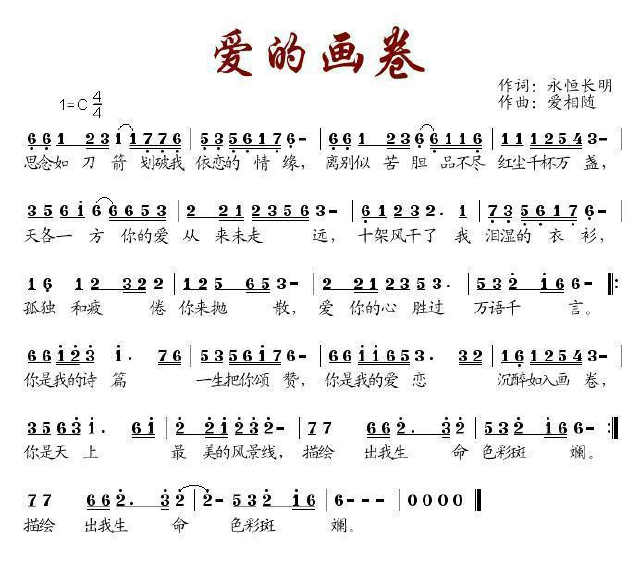 爱的画卷
作词：永恒长明
1=C 4/4
作曲：爱相随
6 6 1 2 3 1 1 7 7 6 | 5 3 5 6 1 7 6 - | 6 6 1 2 3 6 6 1 1 6 | 1 1 1 2 5 4 3 - |
思念如刀箭划破我依恋的情缘，离别似苦胆品不尽红尘千杯万盏，
3 5 6 i 6 6 6 5 3 | 2 2 1 2 3 5 6 3 - | 6 1 2 3 2. 1 | 7 3 5 6 1 7 6 - |
天各一方你的爱从来未走远，十架风干了我泪湿的衣衫，
1 6 1 2 3 2 2 | 1 2 5 6 5 3 - | 2 2 1 2 3 5 3. | 5 3 2 1 6 6 - ‖:
孤独和疲倦你来抛散，爱你的心胜过万语千言。
6 6 i 2 3 i. 7 6 | 5 3 5 6 i 7 6 - | 6 6 i i 6 5 3. 3 2 | 1 6 1 2 5 4 3 - |
你是我的诗篇一生把你颂赞，你是我的爱恋沉醉如入画卷，
3 5 6 3 i. 6 i | 2 2 i 2 3 2 - | 7 7 6 6 2. 3 2 | 5 3 2 i 6 6 - :‖
你是天上最美的风景线，描绘出我生命色彩斑斓。
7 7 6 6 2. 3 2 | 2 - 5 3 2 i 6 | 6 - - - | 0 0 0 0 ‖
描绘出我生命色彩斑斓。